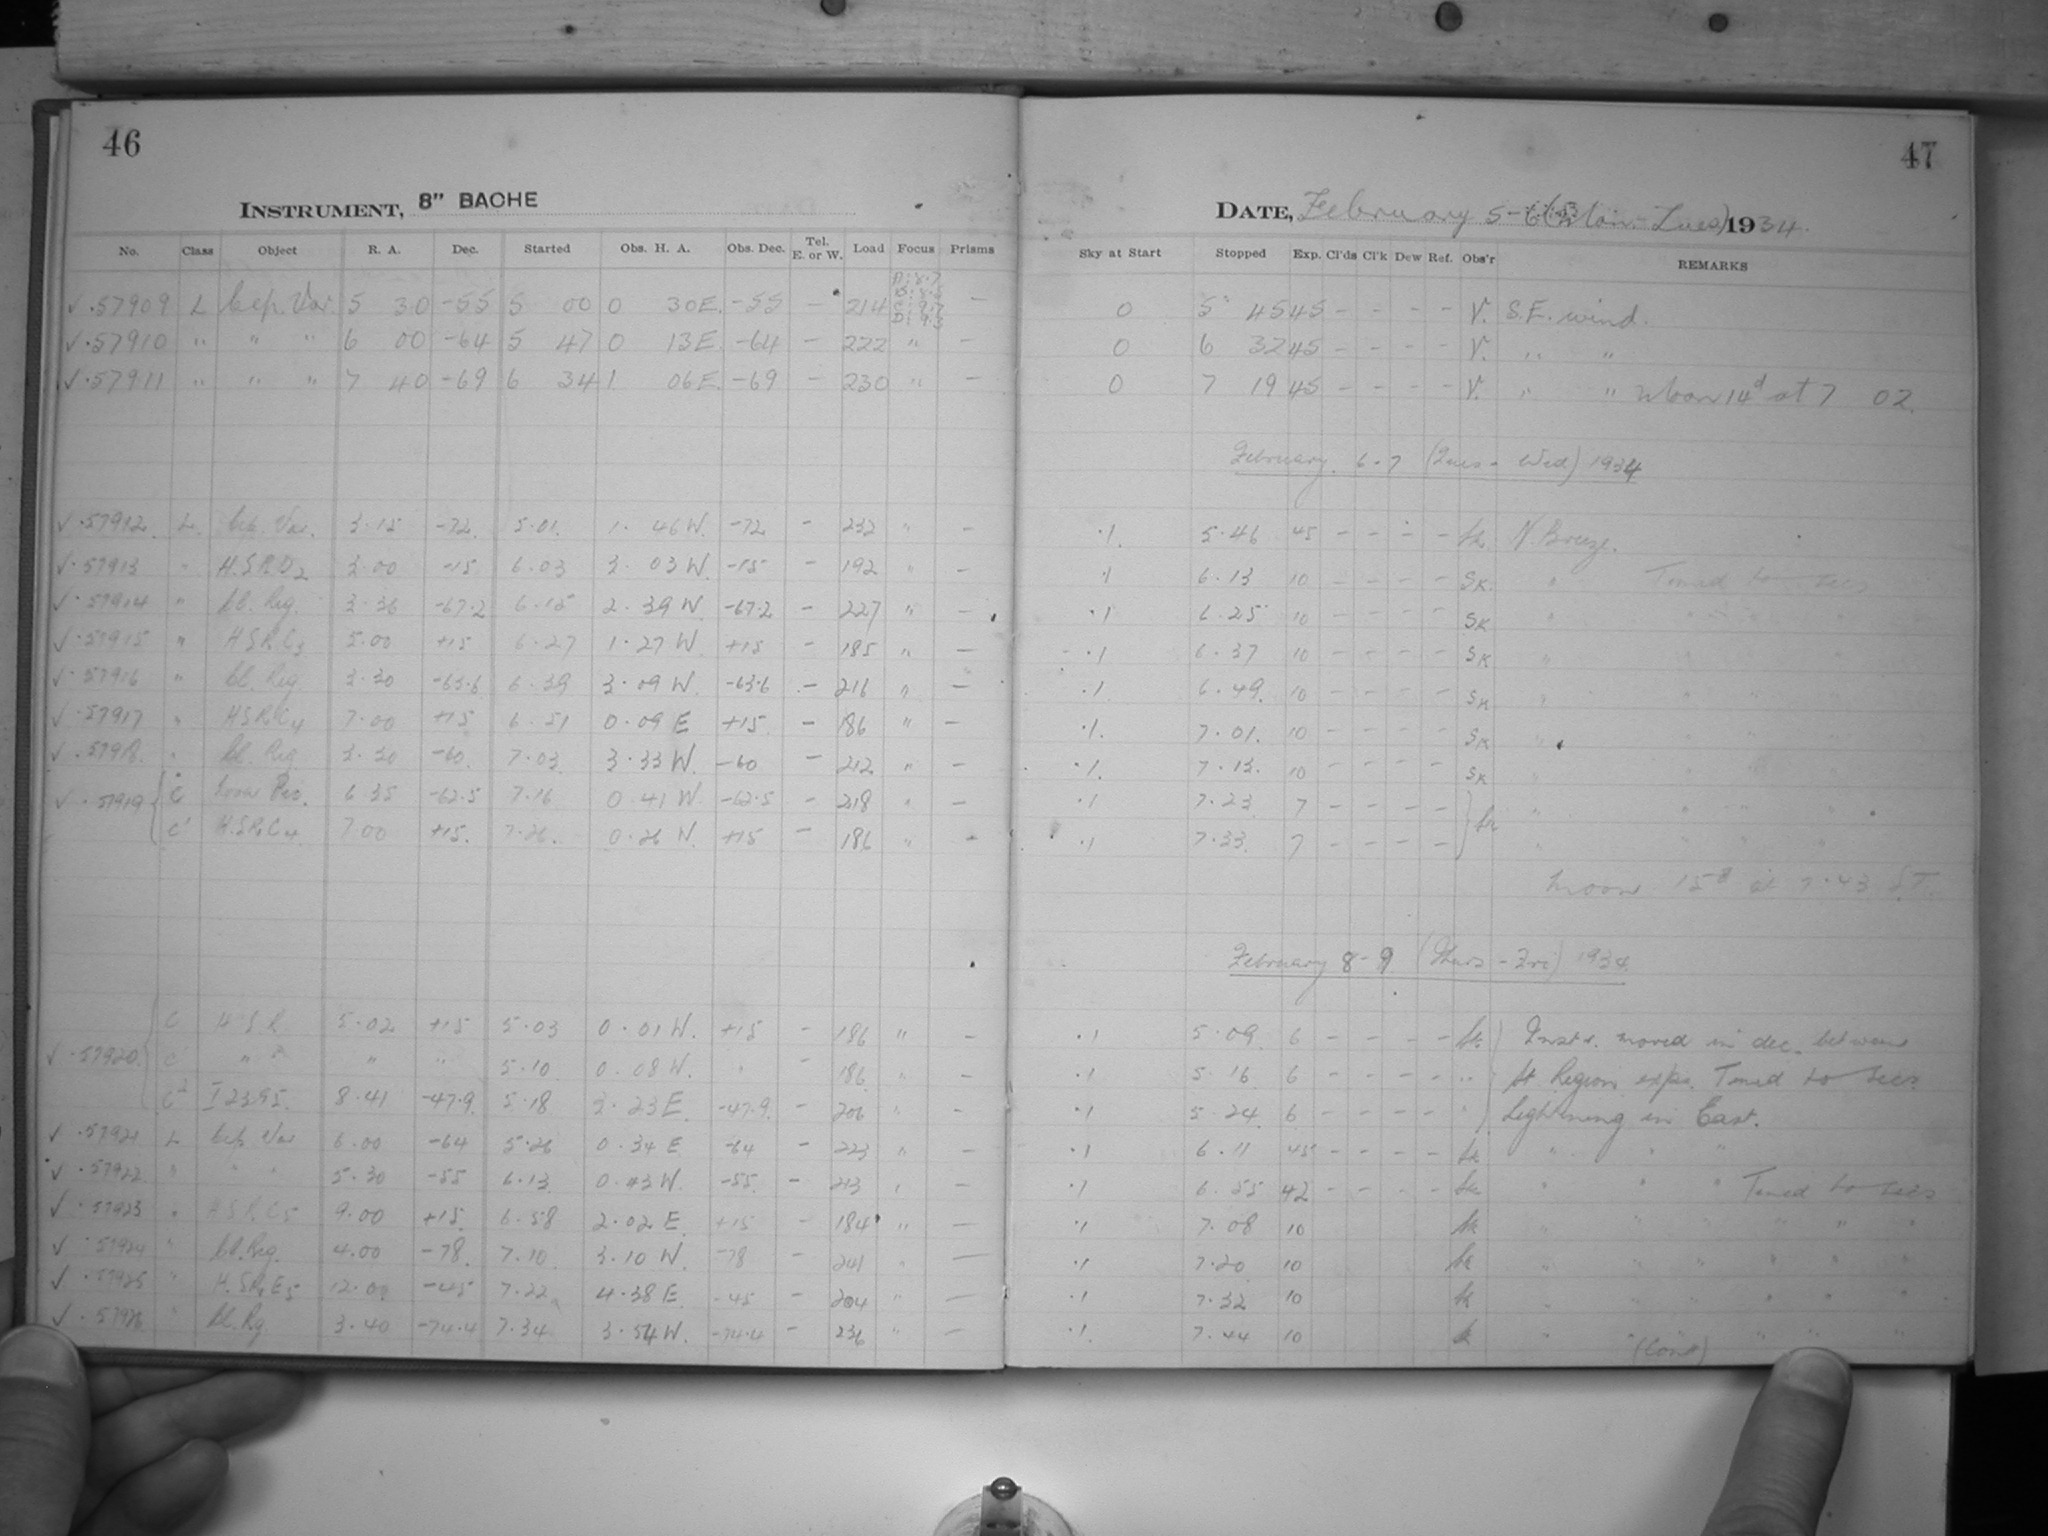 46
INSTRUMENT, 8" BACHE
No. Class Object R. A. Dec. Started Obs. H. A. Obs. Dec. Tel. E. or W. Load Focus Prisms
✓ .57909 L Cep. Var. 5 30 -55 5 00 0 30E. -55 - 214 -
✓ .57910 " " " 6 00 -64 5 47 0 13E. -64 - 222 " -
✓ .57911 " " " 7 40 -69 6 34 1 06E. -69 - 230 " -
✓ .57912. L. Cep. Var. 3.15 -72 5.01. 1. 46 W. -72 - 232 " -
✓ .57913 " H.S.R.D2 3.00 -15 6.03 3. 03 W. -15 - 192 " -
✓ .57914 " Cl. Reg. 3.36 -67.2 6.15 2. 39 W. -67.2 - 227 " -
✓ .57915 " H S R.C3 5.00 +15 6.27 1. 27 W. +15 - 185 " -
✓ .57916 " Cl. Reg 3.30 -63.6 6.39 3. 09 W. -63.6 - 216 " -
✓ .57917 " H S R.C4 7.00 +15 6.51 0.09 E +15 - 186 " -
✓ .57918. " Cl. Reg 3.30 -60. 7.03 3.33 W. -60 - 212 " -
✓ .57919 C 6 35 -62.5 7.16 0.41 W. -62.5 - 218 " -
C' H.S.R.C4 7.00 +15. 7.26. 0.26 W. +15 - 186 " -
C H S R 5.02 +15 5.03 0.01 W. +15 - 186 " -
✓ .57920 C' " " " " 5.10 0.08 W. " - 186 " -
C2 I 2395. 8.41 -47.9 5.18 3. 23 E. -47.9. - 206 " -
✓ .57921 L Cep. Var 6.00 -64 5.26 0.34 E -64 - 223 " -
✓ .57922. " " " 5.30 -55 6.13 0.43 W. -55. - 213 " -
✓ .57923 " H S R.C5 9.00 +15. 6.58 2.02 E. +15 - 184 " -
✓ .57924 " Cl. Reg. 4.00 -78. 7.10. 3.10 W. -78 - 241 " -
✓ .57925 " H. S.R.E5 12.00 -45 7.22 4.38 E. -45 - 204 " -
✓ .57926 " Cl. Rg. 3.40 -74.4 7.34 3.54 W. -74.4 - 236 " -
47
DATE, February 5-6 (Mon.-Tues) 1934.
Sky at Start Stopped Exp. Cl'ds Cl'k Dew Ref. Obs'r REMARKS
0 5 45 45 - - - - V. S.E. wind.
0 6 32 45 - - - - V. " "
0 7 19 45 - - - - V. " " Moon 14d at 7 02.
February 6-7 (Tues - Wed) 1934
.1. 5.46 45 - - - - N. Breeze.
.1 6.13 10 - - - - SK. " Timed to secs
.1 6.25 10 - - - - SK "
.1 6.37 10 - - - - SK "
.1. 6.49. 10 - - - - SK "
.1. 7.01. 10 - - - - SK "
.1. 7.13. 10 - - - - SK "
.1 7.23 7 - - - - "
.1 7.33. 7 - - - - "
Moon 15d at 7.43 S.T.
February 8-9 (Thurs - Fri) 1934
.1 5.09. 6 - - - - Instr. moved in dec. between
.1 5.16 6 - - - - " St Region exps. Timed to secs
.1 5.24 6 - - - - " Lightning in East.
.1 6.11 45 - - - - " " "
.1 6.55 42 - - - - " " " Timed to secs
.1 7.08 10 " " " " "
.1 7.20 10 " " " " "
.1 7.32 10 " " " " "
.1. 7.44 10 " " " " "
(Cont)